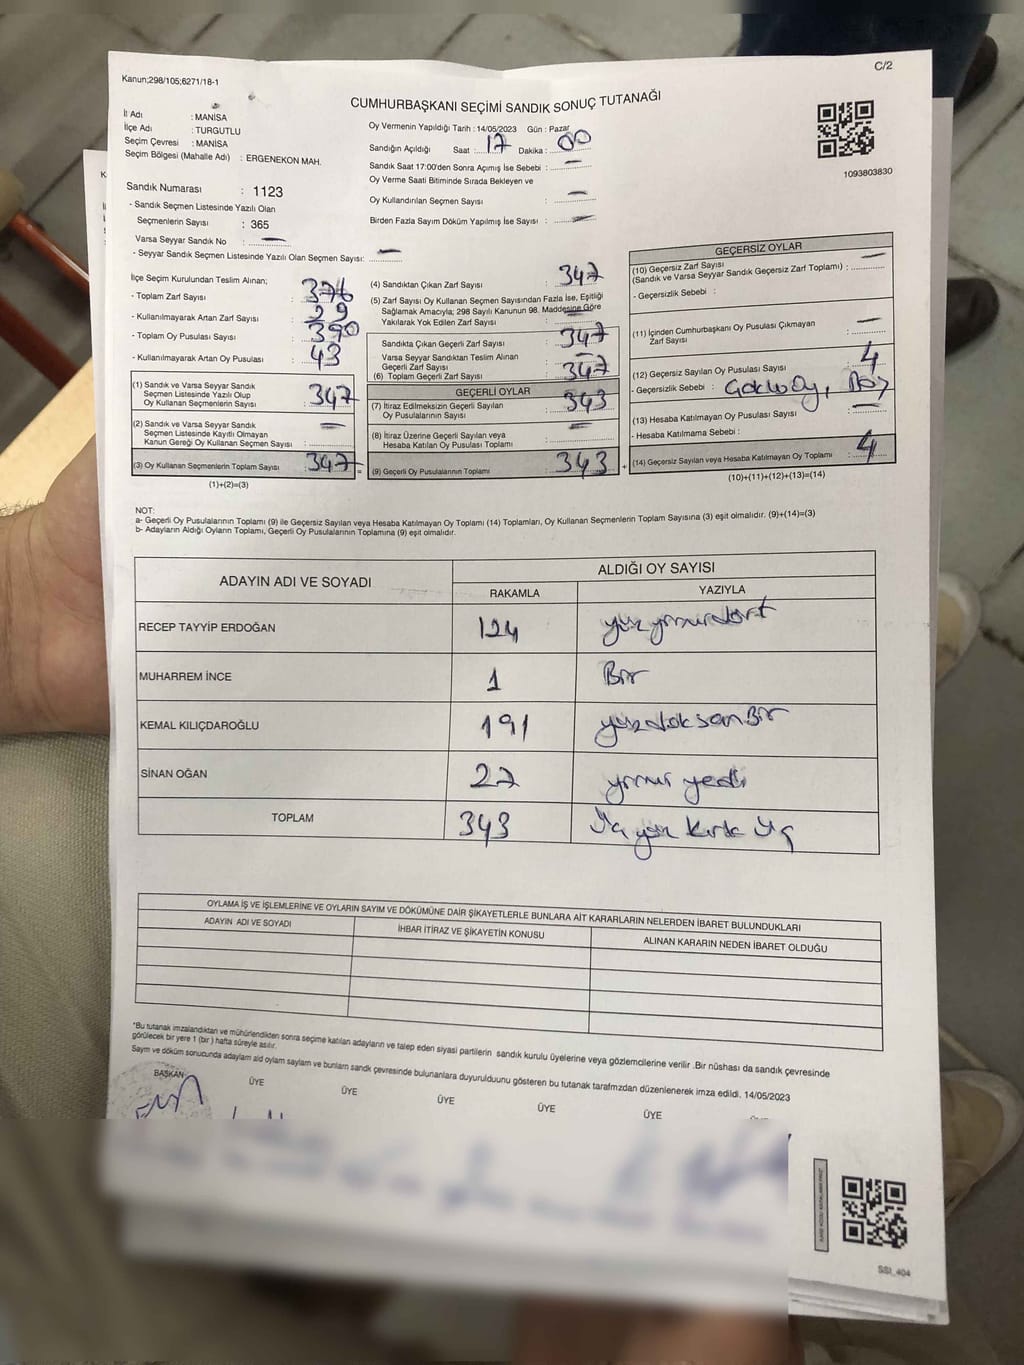 Kanun;298/105;6271/18-1
C/2
CUMHURBAŞKANI SEÇİMİ SANDIK SONUÇ TUTANAĞI
İl Adı : MANİSA
İlçe Adı : TURGUTLU
Seçim Çevresi : MANİSA
Seçim Bölgesi (Mahalle Adı) : ERGENEKON MAH.
Oy Vermenin Yapıldığı Tarih : 14/05/2023 Gün : Pazar
Sandığın Açıldığı Saat : 17 Dakika : 00
Sandık Saat 17:00'den Sonra Açımış İse Sebebi : —
Oy Verme Saati Bitiminde Sırada Bekleyen ve
Oy Kullandırılan Seçmen Sayısı : —
Birden Fazla Sayım Döküm Yapılmış İse Sayısı : —
1093803830
Sandık Numarası : 1123
- Sandık Seçmen Listesinde Yazılı Olan
Seçmenlerin Sayısı : 365
Varsa Seyyar Sandık No : —
- Seyyar Sandık Seçmen Listesinde Yazılı Olan Seçmen Sayısı: —
İlçe Seçim Kurulundan Teslim Alınan;
- Toplam Zarf Sayısı : 376
- Kullanılmayarak Artan Zarf Sayısı : 29
- Toplam Oy Pusulası Sayısı : 390
- Kullanılmayarak Artan Oy Pusulası : 43
(1) Sandık ve Varsa Seyyar Sandık
Seçmen Listesinde Yazılı Olup
Oy Kullanan Seçmenlerin Sayısı : 347
(2) Sandık ve Varsa Seyyar Sandık
Seçmen Listesinde Kayıtlı Olmayan
Kanun Gereği Oy Kullanan Seçmen Sayısı : —
(3) Oy Kullanan Seçmenlerin Toplam Sayısı : 347 =
(1)+(2)=(3)
(4) Sandıktan Çıkan Zarf Sayısı : 347
(5) Zarf Sayısı Oy Kullanan Seçmen Sayısından Fazla İse, Eşitliği
Sağlamak Amacıyla; 298 Sayılı Kanunun 98. Maddesine Göre
Yakılarak Yok Edilen Zarf Sayısı : —
Sandıkta Çıkan Geçerli Zarf Sayısı : 347
Varsa Seyyar Sandıktan Teslim Alınan
Geçerli Zarf Sayısı : —
(6) Toplam Geçerli Zarf Sayısı : 347
GEÇERLİ OYLAR
(7) İtiraz Edilmeksizin Geçerli Sayılan
Oy Pusulalarının Sayısı : 343
(8) İtiraz Üzerine Geçerli Sayılan veya
Hesaba Katılan Oy Pusulası Toplamı : —
(9) Geçerli Oy Pusulalarının Toplamı : 343 +
GEÇERSİZ OYLAR
(10) Geçersiz Zarf Sayısı
(Sandık ve Varsa Seyyar Sandık Geçersiz Zarf Toplamı) : —
- Geçersizlik Sebebi :
(11) İçinden Cumhurbaşkanı Oy Pusulası Çıkmayan
Zarf Sayısı : —
(12) Geçersiz Sayılan Oy Pusulası Sayısı : 4
- Geçersizlik Sebebi :
(13) Hesaba Katılmayan Oy Pusulası Sayısı : —
- Hesaba Katılmama Sebebi :
(14) Geçersiz Sayılan veya Hesaba Katılmayan Oy Toplamı : 4
(10)+(11)+(12)+(13)=(14)
NOT:
a- Geçerli Oy Pusulalarının Toplamı (9) ile Geçersiz Sayılan veya Hesaba Katılmayan Oy Toplamı (14) Toplamları, Oy Kullanan Seçmenlerin Toplam Sayısına (3) eşit olmalıdır. (9)+(14)=(3)
b- Adayların Aldığı Oyların Toplamı, Geçerli Oy Pusulalarının Toplamına (9) eşit olmalıdır.
ADAYIN ADI VE SOYADI
ALDIĞI OY SAYISI
RAKAMLA YAZIYLA
RECEP TAYYİP ERDOĞAN 124 yüzyirmidört
MUHARREM İNCE 1 Bir
KEMAL KILIÇDAROĞLU 191 yüzdoksanBir
SİNAN OĞAN 27 yirmi yedi
TOPLAM 343 Üç yüz kırk üç
OYLAMA İŞ VE İŞLEMLERİNE VE OYLARIN SAYIM VE DÖKÜMÜNE DAİR ŞİKAYETLERLE BUNLARA AİT KARARLARIN NELERDEN İBARET BULUNDUKLARI
ADAYIN ADI VE SOYADI
İHBAR İTİRAZ VE ŞİKAYETİN KONUSU
ALINAN KARARIN NEDEN İBARET OLDUĞU
*Bu tutanak imzalandıktan ve mühürlendikten sonra seçime katılan adayların ve talep eden siyasi partilerin sandık kurulu üyelerine veya gözlemcilerine verilir .Bir nüshası da sandık çevresinde
görülecek bir yere 1 (bir ) hafta süreyle asılır.
Sayım ve döküm sonucunda adayların aid oyların sayların ve bunların sandık çevresinde bulunanlara duyurulduunu gösteren bu tutanak tarafımzdan düzenlenerek imza edildi. 14/05/2023
BAŞKAN ÜYE ÜYE ÜYE ÜYE ÜYE
SSI_404